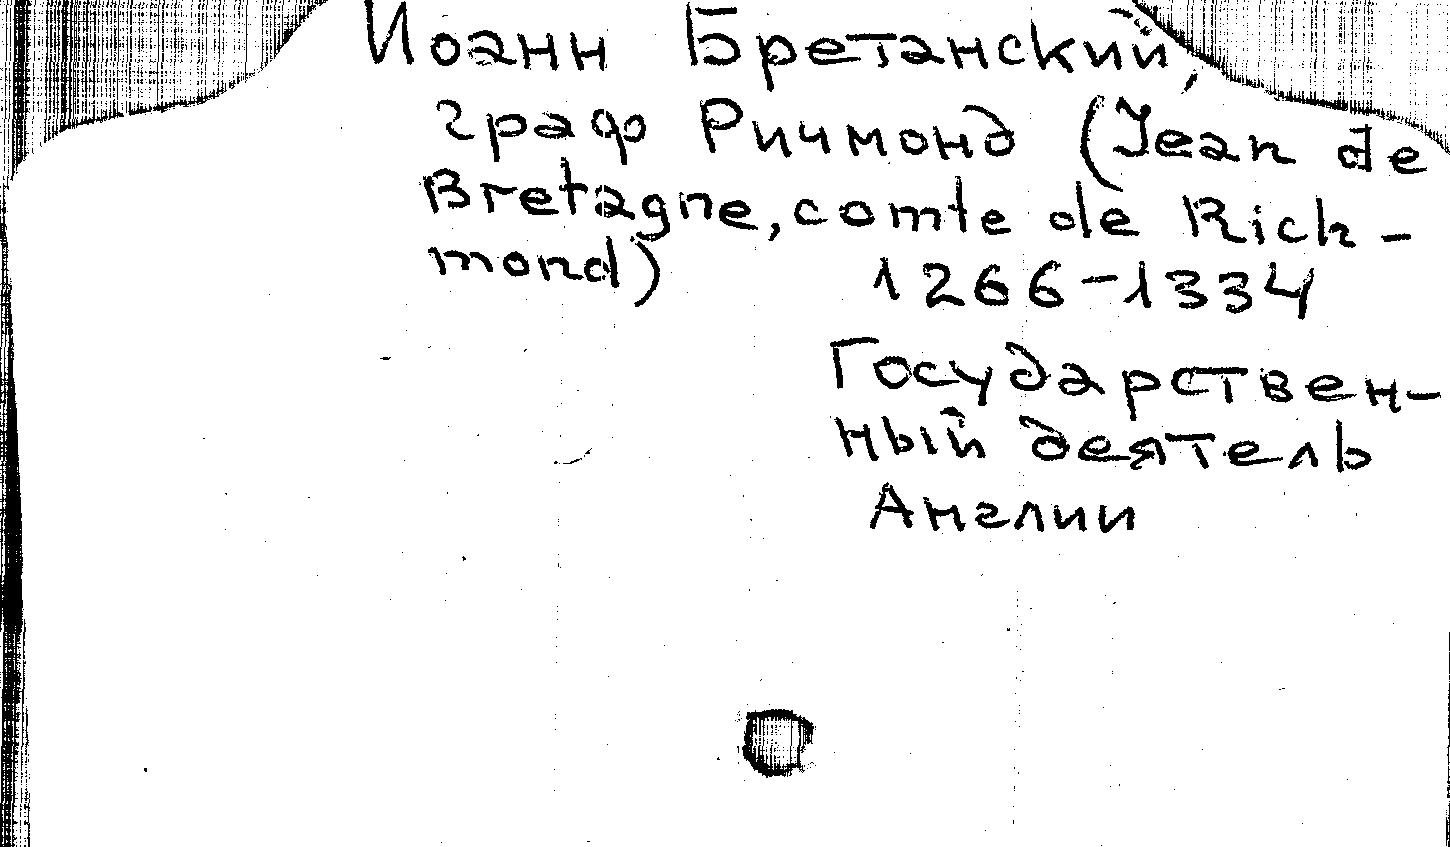 Иоанн Бретанский,
граф Ричмонд (Jean de
Bretagne, comte de Rich-
mond) 1266-1334
Государствен-
ный деятель
Англии